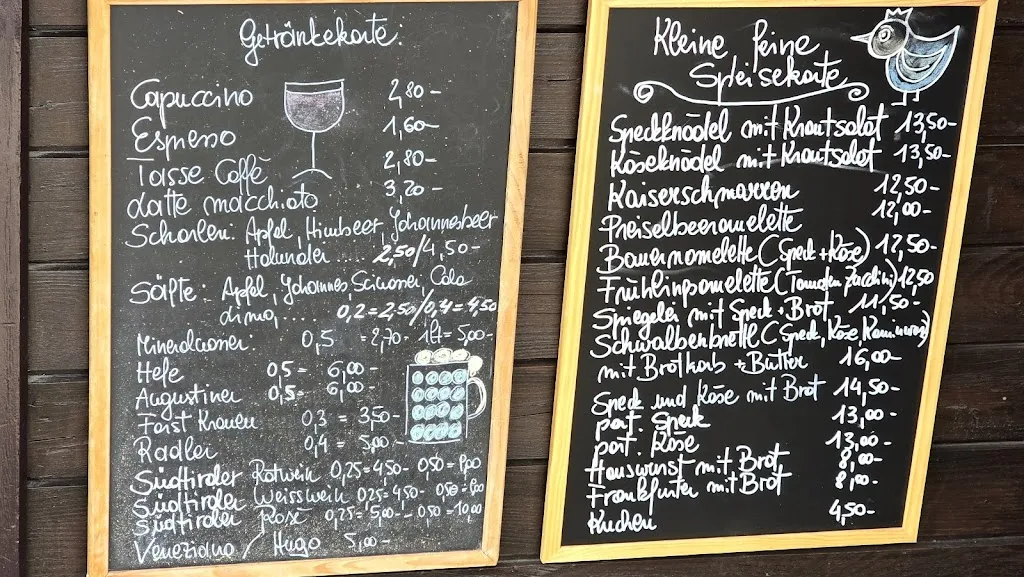 Getränkekarte:
Capuccino 2,80-
Espresso 1,60-
Tasse Caffè 2,80-
Latte macchiato 3,20-
Schorlen: Apfel, Himbeer, Johannesbeer
Holunder .... 2,50/4,50-
Säfte: Apfel, Johannes, Cola
Limo, ..... 0,2 = 2,50/0,4 = 4,50
Mineralwasser: 0,5 = 2,70- 1lt = 5,00-
Hefe 0,5 = 6,00-
Augustiner 0,5 = 6,00-
Forst Kronen 0,3 = 3,50-
Radler 0,4 = 5,00-
Südtiroler Rotwein 0,25 = 4,50- 0,50 = 9,00
Südtiroler Weisswein 0,25 = 4,50- 0,50 = 9,00
Südtiroler Rosé 0,25 = 5,00- 0,50 = 10,00
Veneziano / Hugo 5,00-
Kleine feine
Speisekarte
Speckknödel mit Krautsalat 13,50-
Käseknödel mit Krautsalat 13,50-
Kaiserschmarren 12,50-
Preiselbeeromelette 12,00-
Bauernomelette (Speck + Käse) 12,50-
Frühlingomelette (Tomaten Zucchini) 12,50
Spiegeler mit Speck + Brot 11,50-
Schwalbenbrettl (Speck, Käse, Kaminwurz)
mit Brotkorb + Butter 16,00-
Speck und Käse mit Brot 14,50-
port. Speck 13,00-
port. Käse 13,00-
Hauswurst mit Brot 8,00-
Frankfurter mit Brot 8,00-
Kuchen 4,50-